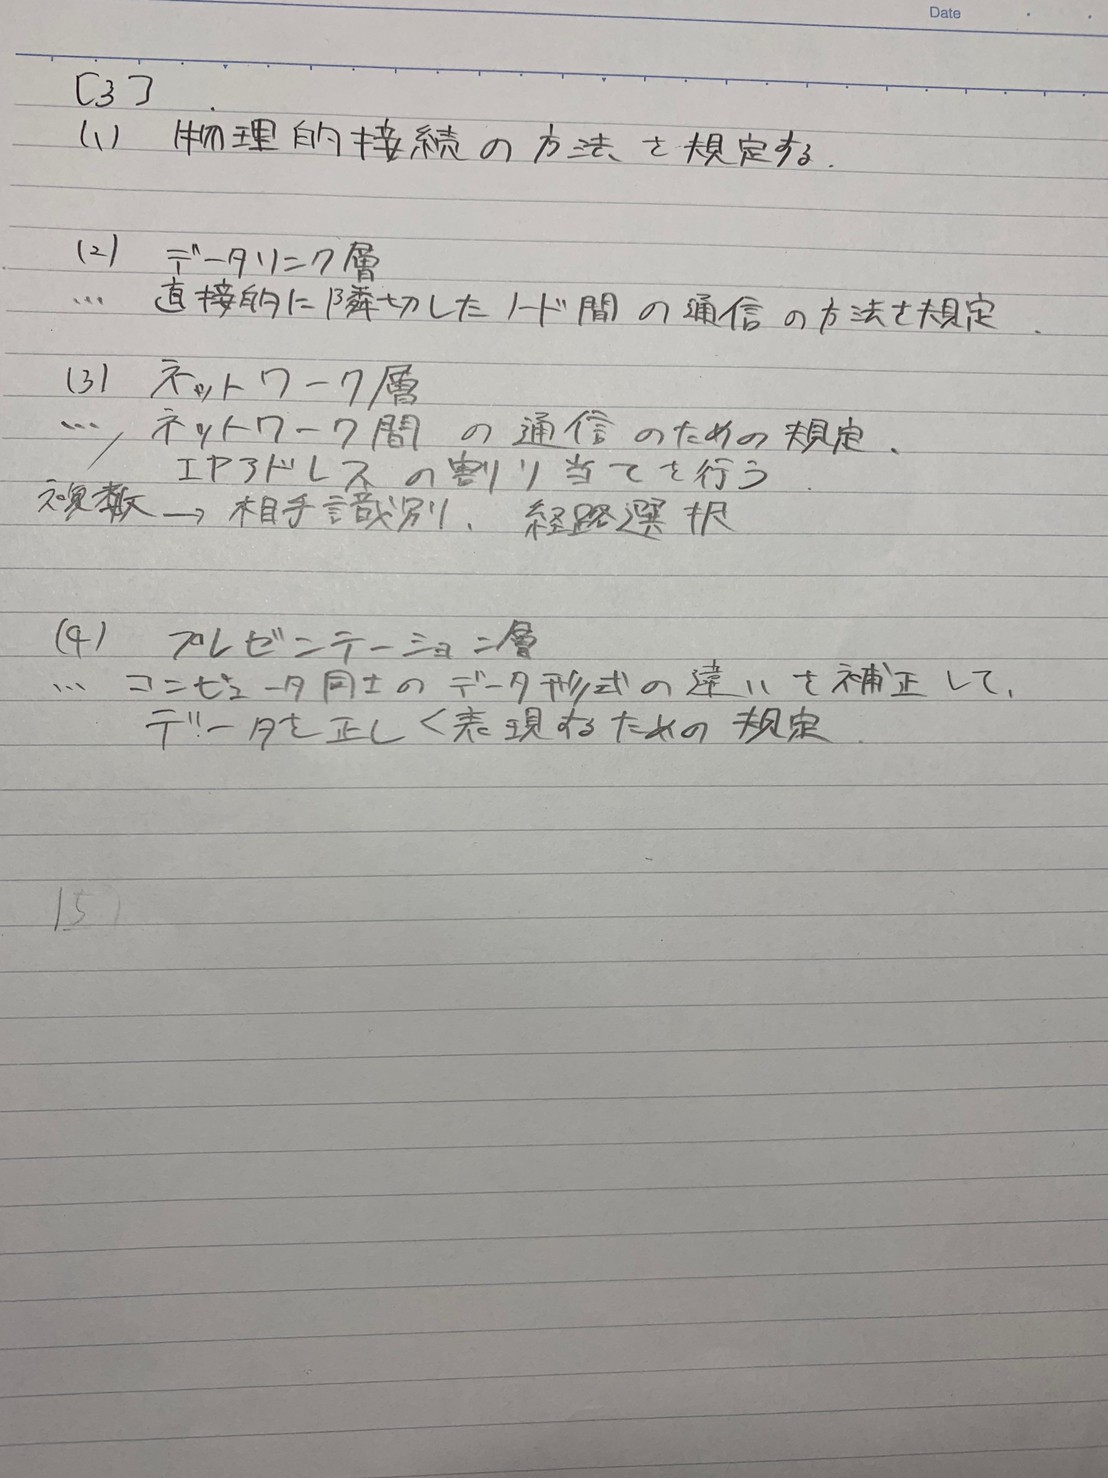 Date
[3]
(1) 物理的接続の方法を規定する.
(2) データリンク層
… 直接的に隣切したノード間の通信の方法を規定.
(3) ネットワーク層
… ネットワーク間の通信のための規定.
IPアドレスの割り当てを行う.
複数 → 相手識別、経路選択
(4) プレゼンテーション層
… コンピュータ同士のデータ形式の違いを補正して、
データを正しく表現するための規定.
(5)